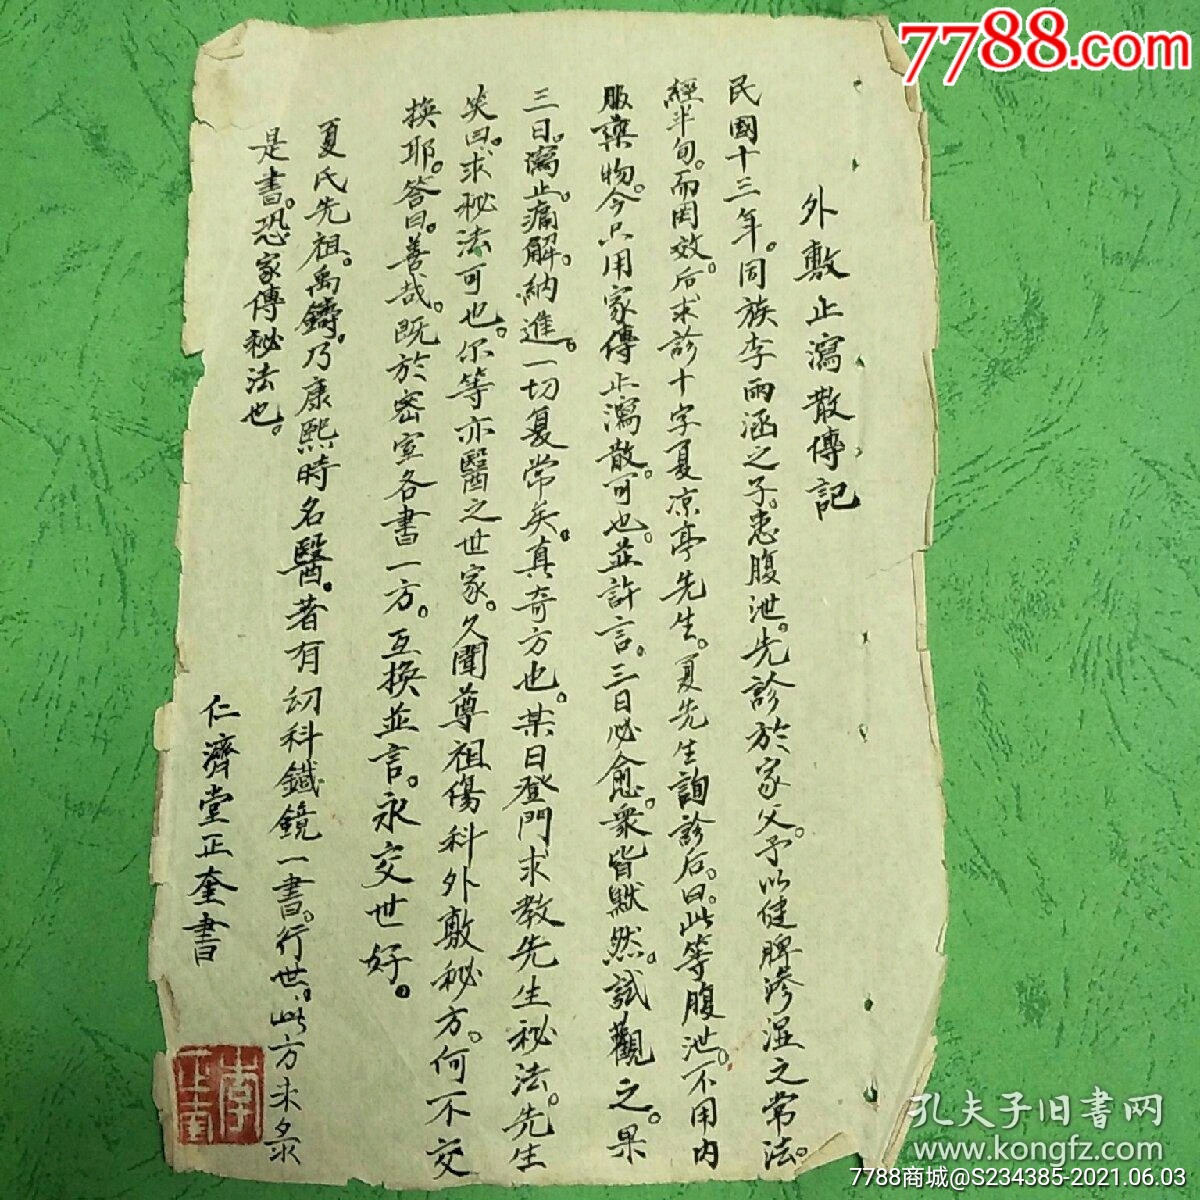 7788.com
外敷止瀉散傳記
民國十三年。同族李雨涵之子。患腹泄。先診於家父。予以健脾滲湿之常法。
經半旬。而罔效。后求診十字夏凉亭先生。夏先生詢診后。曰。此等腹泄。不用内
服藥物。今只用家傳止瀉散。可也。並許言。三日必愈。衆皆默然。試觀之。果
三日。瀉止。痛解。納進。一切复常矣。真奇方也。某日登門求教先生秘法。先生
笑曰。求秘法可也。尔等亦醫之世家。久聞尊祖傷科外敷秘方。何不交
換耶。答曰。善哉。既於密室各書一方。互換並言。永交世好。
夏氏先祖。禹鑄。乃康熙時名醫。著有幼科鐵鏡一書。行世。此方未彔
是書。恐家傳秘法也。
仁濟堂正奎書
李正奎
孔夫子旧書网
www.kongfz.com
7788商城@S234385-2021.06.03